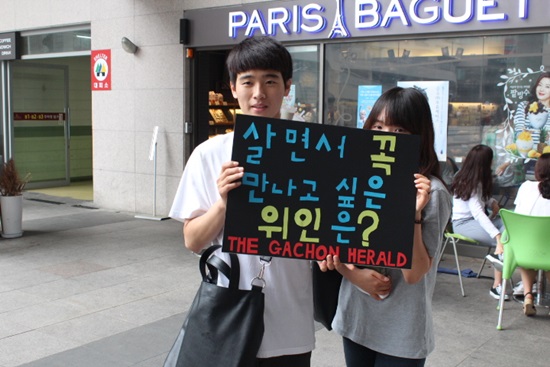 PARIS BAGUET
살면서 꼭
만나고 싶은
위인은?
THE GACHON HERALD